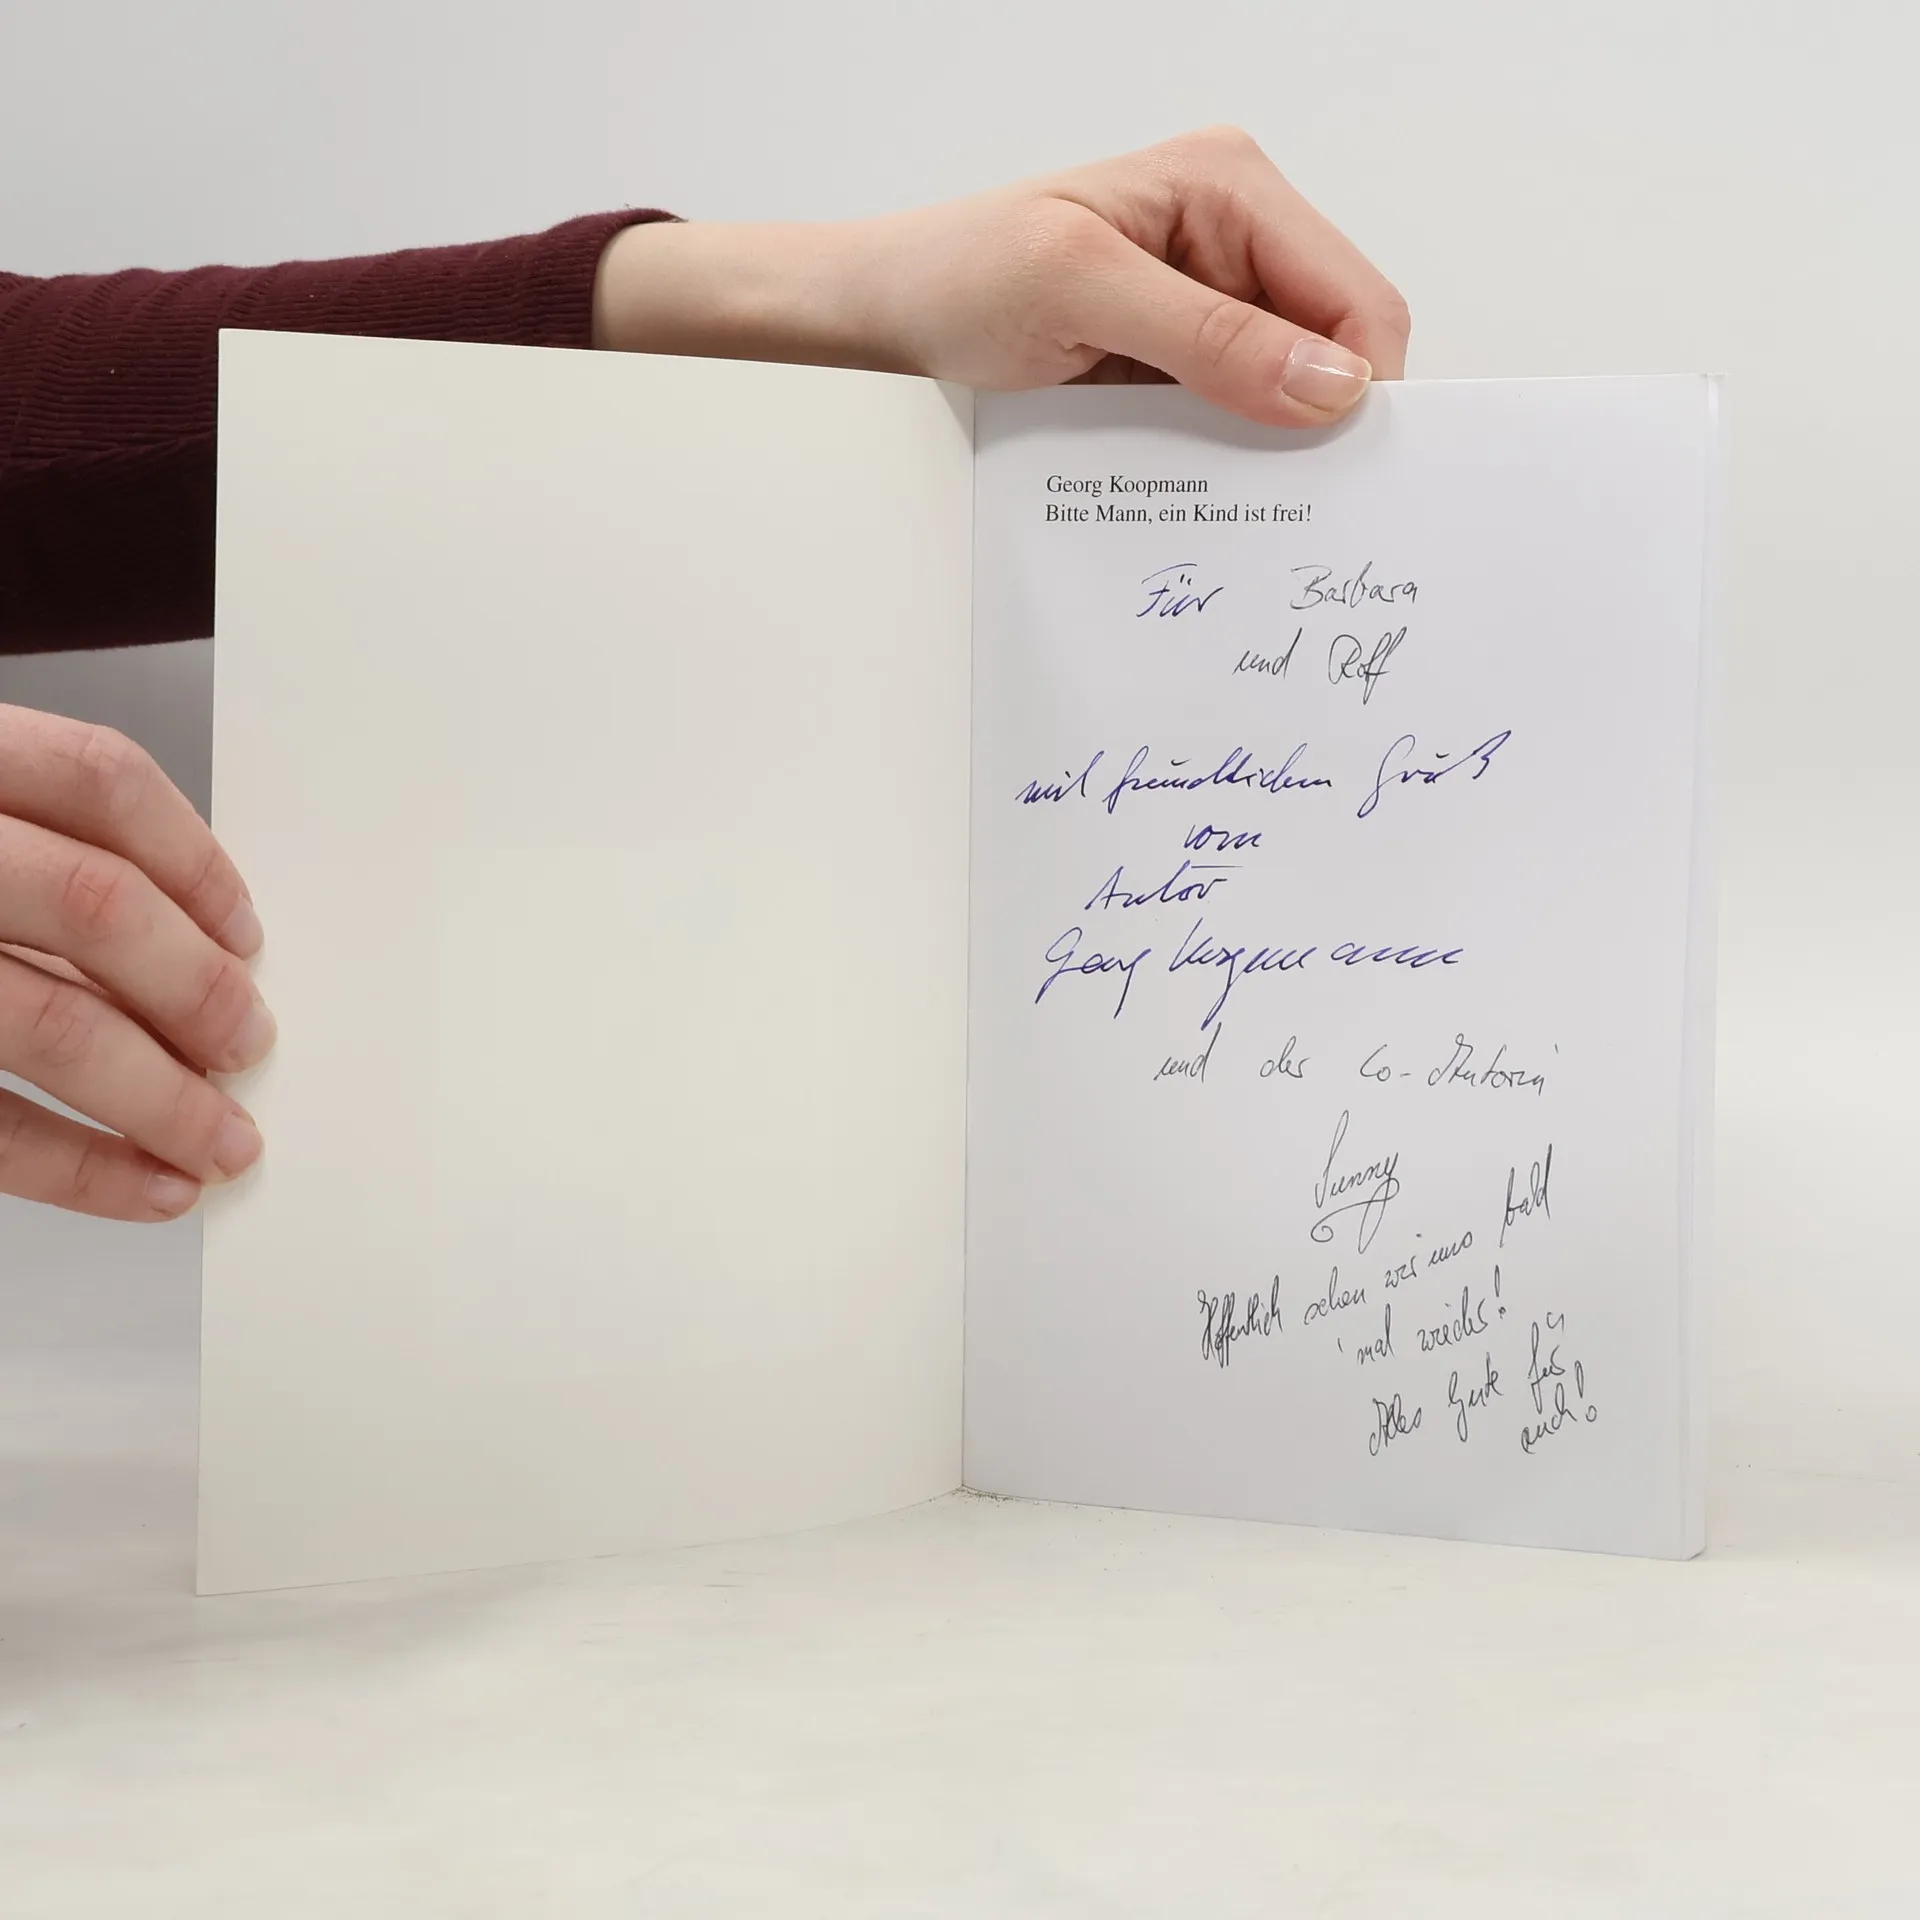 Georg Koopmann
Bitte Mann, ein Kind ist frei!
Für Barbara
und Rolf
mit freundlichem Gruß
vom
Autor
Georg Koopmann
und der Co-Autorin
Sunny
Hoffentlich sehen wir uns bald
'mal wieder!
Alles Gute für
euch!